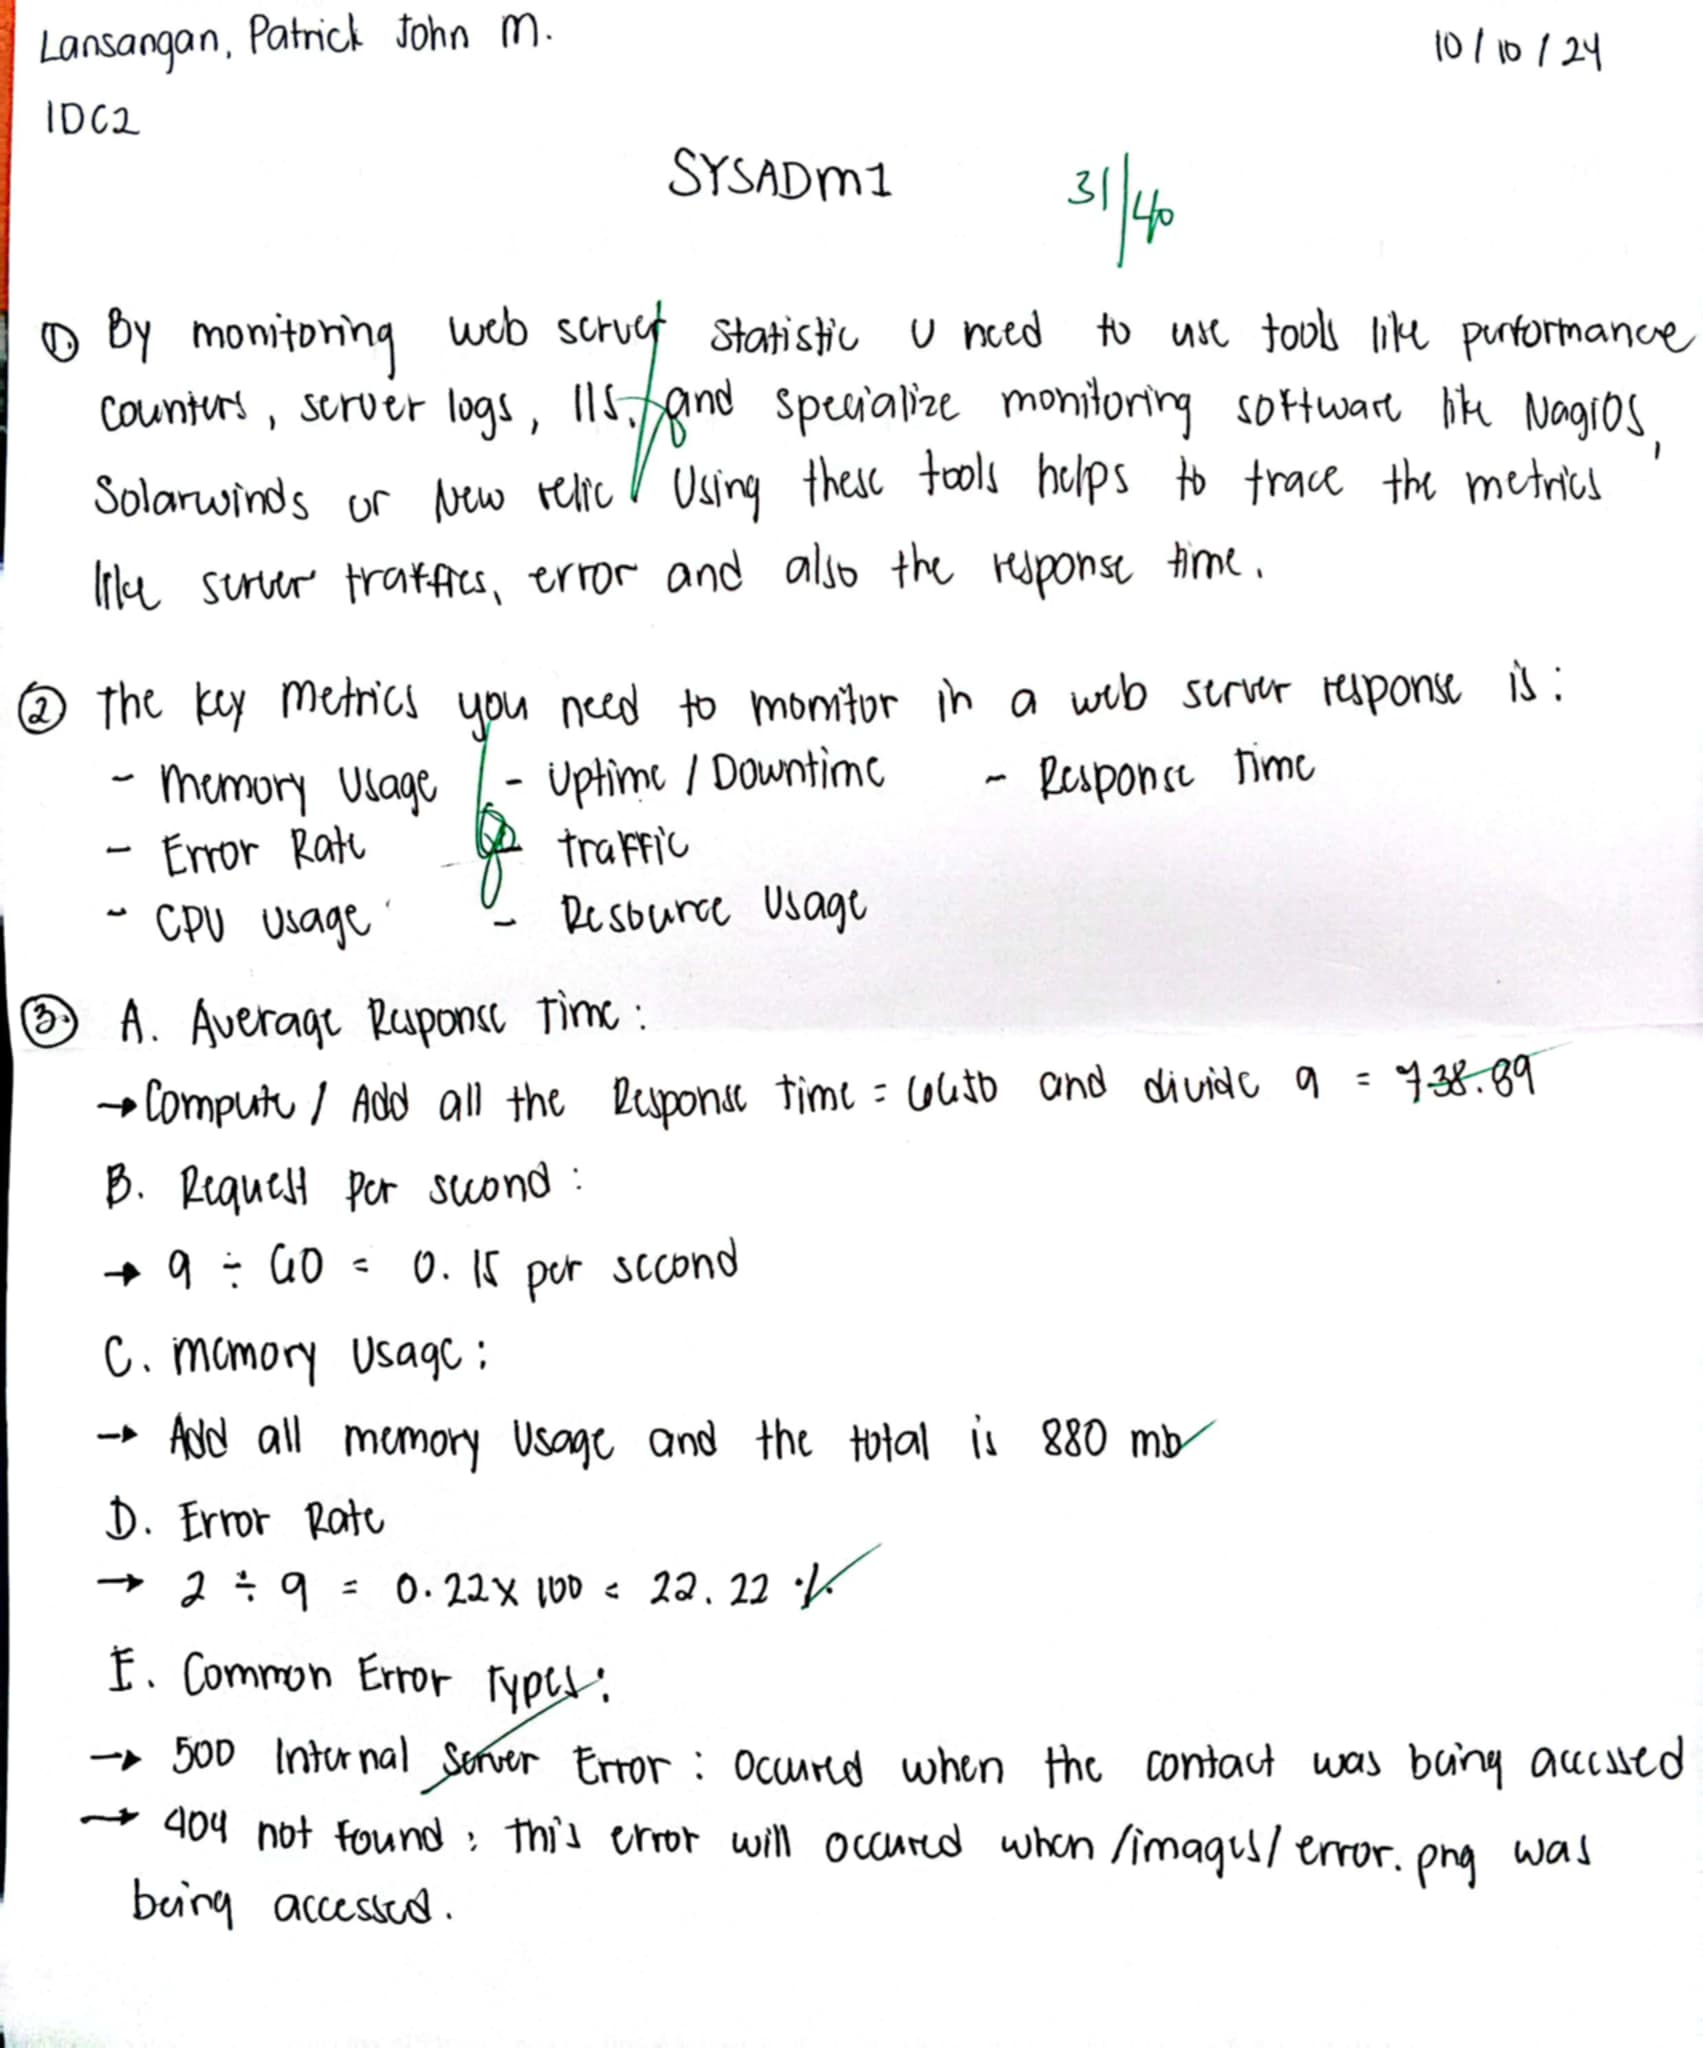 Lansangan, Patrick John M.
10/10/24
1DC2
SYSADM1
31/40
① By monitoring web server statistic u need to use tools like performance
counters, server logs, IIS, and specialize monitoring software like NagiOS,
Solarwinds or New relic Using these tools helps to trace the metrics
like server traffics, error and also the response time.
② The key metrics you need to monitor in a web server response is:
- Memory Usage - Uptime / Downtime - Response Time
- Error Rate - traffic
- CPU Usage - Resource Usage
③ A. Average Response Time:
→ Compute / Add all the Response time = 6650 and divide 9 = 738.89
B. Request per second:
→ 9 ÷ 60 = 0.15 per second
C. Memory Usage:
→ Add all memory Usage and the total is 880 mb
D. Error Rate
→ 2 ÷ 9 = 0.22 x 100 = 22.22 %
E. Common Error Types:
→ 500 Internal Server Error: occured when the contact was being accessed
→ 404 not found: this error will occured when /images/error.png was
being accessed.